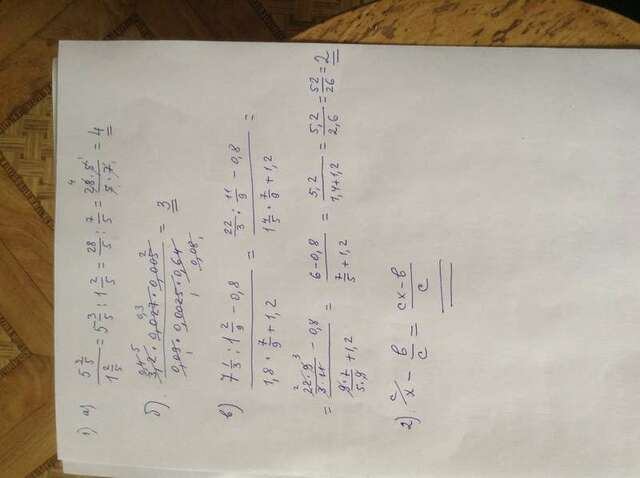 1) а) 5 3/5 / 1 2/5 = 5 3/5 : 1 2/5 = 28/5 : 7/5 = 28·5 / 5·7 = 4
4 1 1 1
б). 3,2 · 0,027 · 0,005 / 0,09 · 0,0025 · 0,64 = 3
0,4 5 0,3 2
1 1 0,08 1
в) 7 1/3 : 1 2/9 − 0,8 / 1,8 · 7/9 + 1,2 = 22/3 : 11/9 − 0,8 / 1 4/5 · 7/9 + 1,2 =
= 22·9 / 3·11 − 0,8 / 9·7 / 5·9 + 1,2 = 6−0,8 / 7/5 + 1,2 = 5,2 / 1,4+1,2 = 5,2/2,6 = 52/26 = 2
2 3
2). c/ x − в/c = cx−в / c